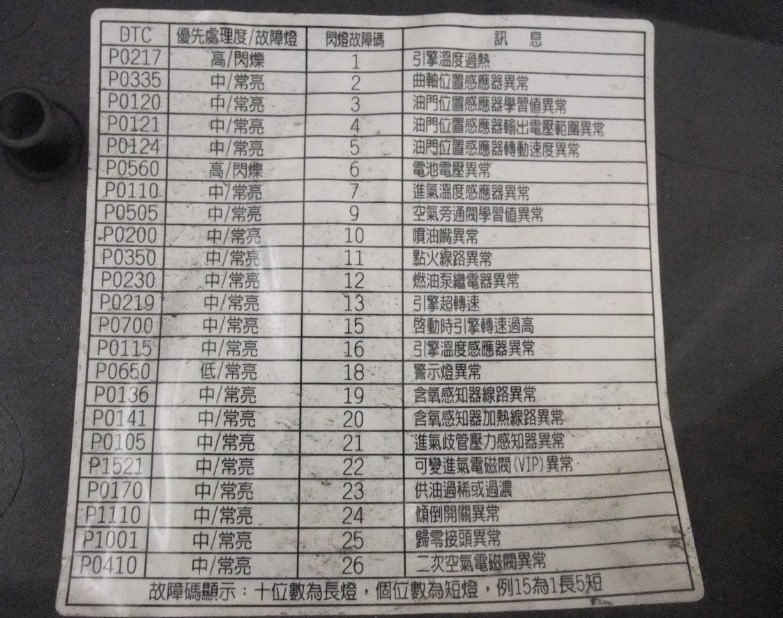 DTC 優先處理度/故障燈 閃燈故障碼 訊 息
P0217 高/閃爍 1 引擎溫度過熱
P0335 中/常亮 2 曲軸位置感應器異常
P0120 中/常亮 3 油門位置感應器學習值異常
P0121 中/常亮 4 油門位置感應器輸出電壓範圍異常
P0124 中/常亮 5 油門位置感應器轉動速度異常
P0560 高/閃爍 6 電池電壓異常
P0110 中/常亮 7 進氣溫度感應器異常
P0505 中/常亮 9 空氣旁通閥學習值異常
P0200 中/常亮 10 噴油嘴異常
P0350 中/常亮 11 點火線路異常
P0230 中/常亮 12 燃油泵繼電器異常
P0219 中/常亮 13 引擎超轉速
P0700 中/常亮 15 啓動時引擎轉速過高
P0115 中/常亮 16 引擎溫度感應器異常
P0650 低/常亮 18 警示燈異常
P0136 中/常亮 19 含氧感知器線路異常
P0141 中/常亮 20 含氧感知器加熱線路異常
P0105 中/常亮 21 進氣歧管壓力感知器異常
P1521 中/常亮 22 可變進氣電磁閥(VIP)異常
P0170 中/常亮 23 供油過稀或過濃
P1110 中/常亮 24 傾倒開關異常
P1001 中/常亮 25 歸零接頭異常
P0410 中/常亮 26 二次空氣電磁閥異常
故障碼顯示：十位數為長燈，個位數為短燈，例15為1長5短